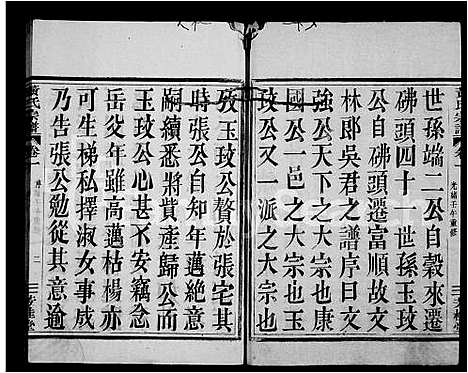 黃氏宗譜
卷
光緒壬午重修
世孫端二公自穀來遷
佛頭四十一世孫玉玟
公自佛頭遷富順前代
林郎吳君之譜序曰文
強公天下之大宗也康
國公一邑之大宗也玉
玟公又一派之大宗也
攷玉玟公贅於張宅其
時張公自知年邁絕意
嗣續悉將貲產歸公而
玉玟公心甚不安竊念
岳父年雖高邁枯楊亦
可生梯私擇淑女事成
乃告張公勉從其意逾
黃氏宗譜
卷一
二